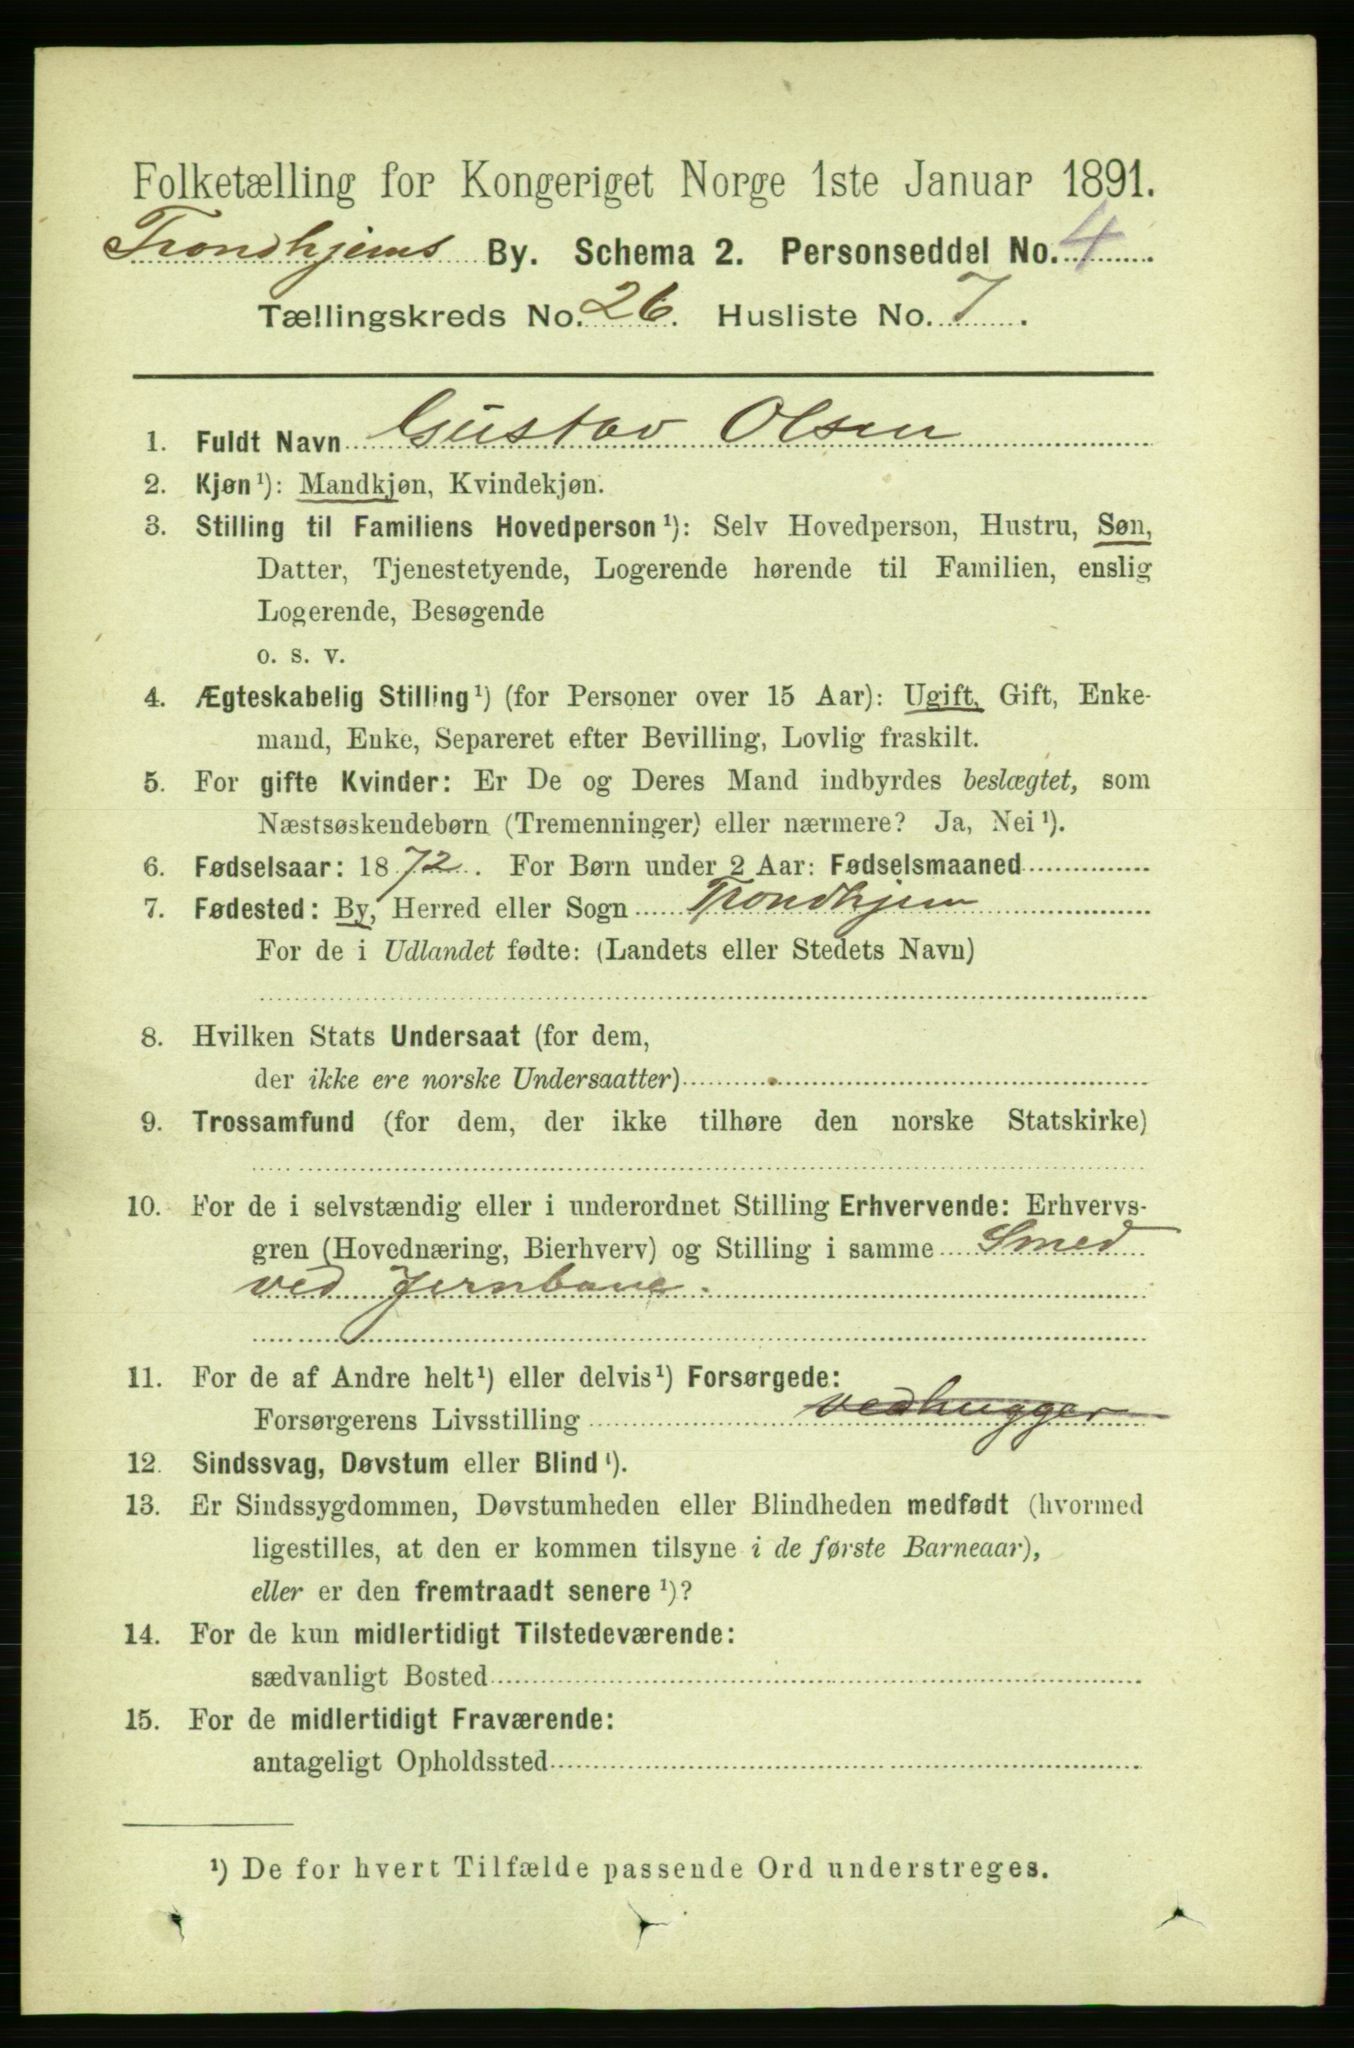 Folketælling for Kongeriget Norge 1ste Januar 1891.
Trondhjems By. Schema 2. Personseddel No. 4
Tællingskreds No. 26. Husliste No. 7.
1. Fuldt Navn Gustav Olsen
2. Kjøn¹): Mandkjøn, Kvindekjøn.
3. Stilling til Familiens Hovedperson¹): Selv Hovedperson, Hustru, Søn,
Datter, Tjenestetyende, Logerende hørende til Familien, enslig
Logerende, Besøgende
o. s. v.
4. Ægteskabelig Stilling¹) (for Personer over 15 Aar): Ugift, Gift, Enke-
mand, Enke, Separeret efter Bevilling, Lovlig fraskilt.
5. For gifte Kvinder: Er De og Deres Mand indbyrdes beslægtet, som
Næstsøskendebørn (Tremenninger) eller nærmere? Ja, Nei¹).
6. Fødselsaar: 1872. For Børn under 2 Aar: Fødselsmaaned
7. Fødested: By, Herred eller Sogn Trondhjem
For de i Udlandet fødte: (Landets eller Stedets Navn)
8. Hvilken Stats Undersaat (for dem,
der ikke ere norske Undersaatter)
9. Trossamfund (for dem, der ikke tilhøre den norske Statskirke)
10. For de i selvstændig eller i underordnet Stilling Erhvervende: Erhvervs-
gren (Hovednæring, Bierhverv) og Stilling i samme Smed
ved Jernbane.
11. For de af Andre helt¹) eller delvis¹) Forsørgede:
Forsørgerens Livsstilling vedhugger
12. Sindssvag, Døvstum eller Blind¹).
13. Er Sindssygdommen, Døvstumheden eller Blindheden medfødt (hvormed
ligestilles, at den er kommen tilsyne i de første Barneaar),
eller er den fremtraadt senere¹)?
14. For de kun midlertidigt Tilstedeværende:
sædvanligt Bosted
15. For de midlertidigt Fraværende:
antageligt Opholdssted
¹) De for hvert Tilfælde passende Ord understreges.